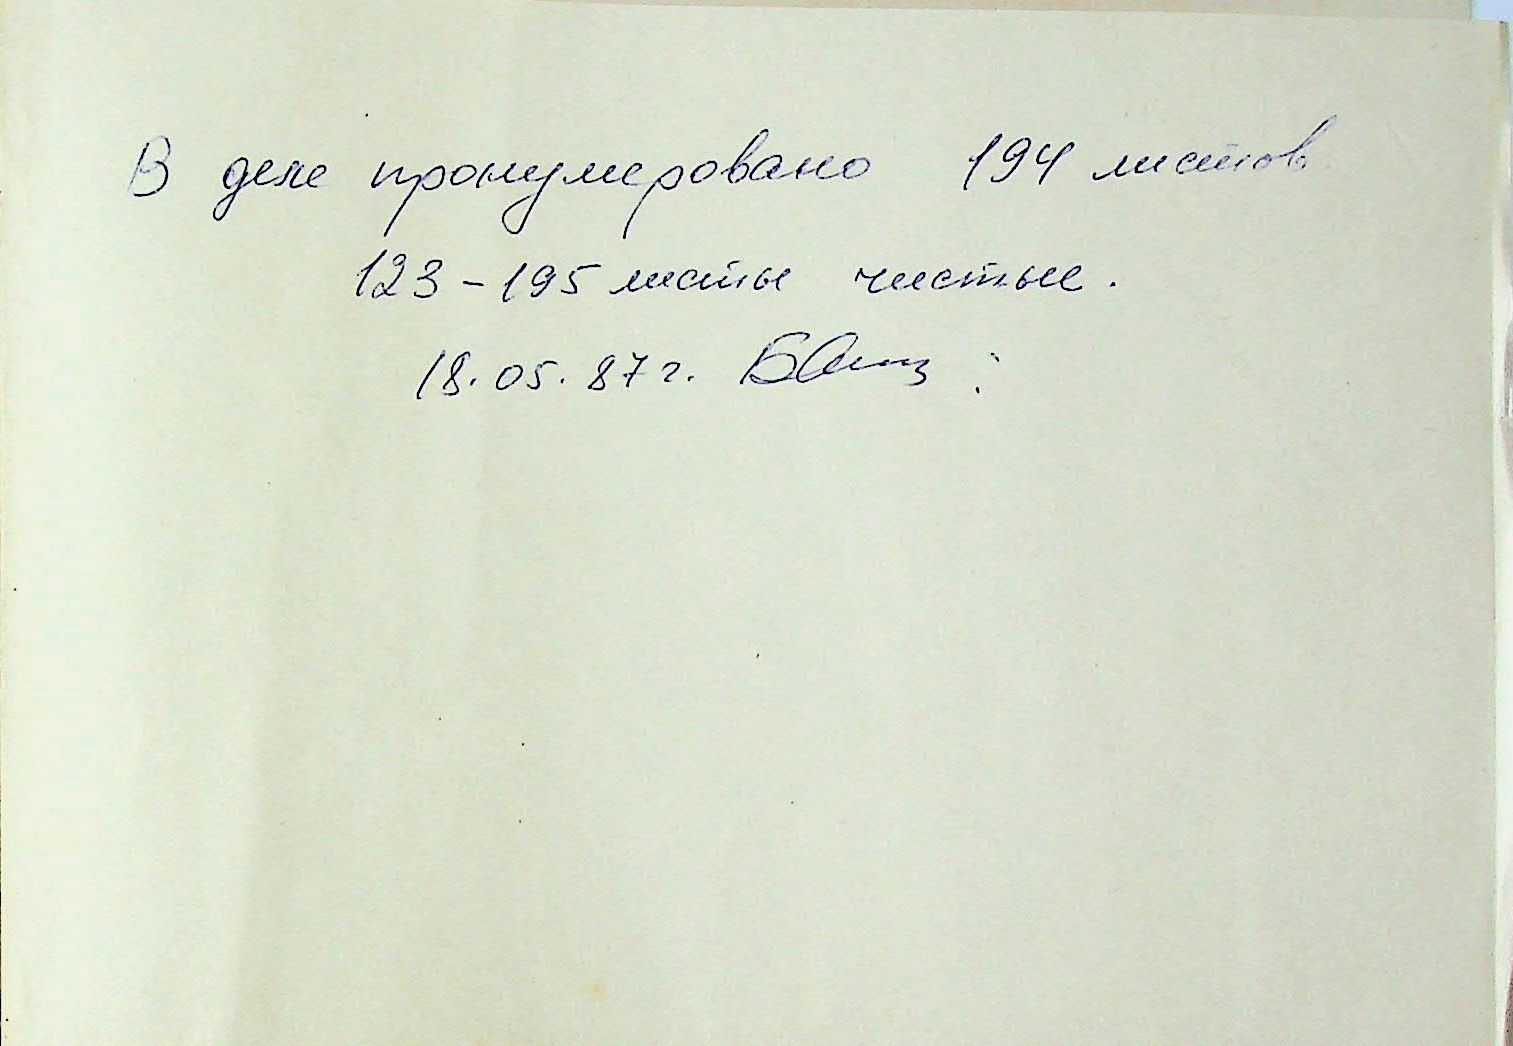 В деле пронумеровано 194 листов
123-195 листы чистые.
18.05.87г.